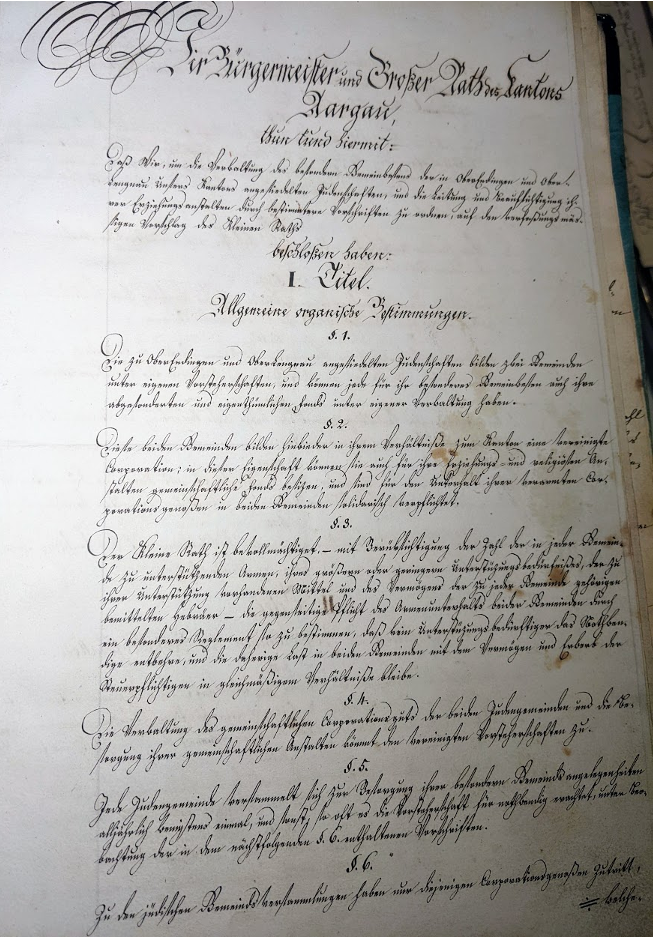 Wir Bürgermeister und Großer Rath des Cantons
Aargau,
thun kund hiermit:
Daß Wir, um die Verwaltung des besondern Gemeindwesens der in Oberendingen und Ober-
lengnau Unsers Kantons angesiedelten Judenschaften, und die Leitung und Beaufsichtigung ih-
rer Erziehungsanstalten durch bestimmtere Vorschriften zu ordnen, auf den verfassungsmäs-
sigen Vorschlag des Kleinen Raths
beschloßen haben:
I. Titel.
Allgemeine organische Bestimmungen.
§. 1.
Die zu Oberendingen und Oberlengnau angesiedelten Judenschaften bilden zwei Gemeinden
unter eigenen Vorsteherschaften, und können jede für ihr besonderes Gemeindwesen auch ihre
abgesonderten und eigenthümlichen Fonds unter eigener Verwaltung haben.
§. 2.
Diese beiden Gemeinden bilden hinwieder in ihrem Verhältniße zum Kanton eine vereinigte
Corporation; in dieser Eigenschaft können sie auch für ihre Erziehungs- und religiösen An-
stalten gemeinschaftliche Fonds besitzen, und sind für den Unterhalt ihrer verarmten Cor-
porationsgenoßen in beiden Gemeinden solidarisch verpflichtet.
§. 3.
Der Kleine Rath ist bevollmächtiget, – mit Berücksichtigung der Zahl der in jeder Gemein-
de zu unterstützenden Armen, ihres größern oder geringern Unterstützungsbedürfnißes, der zu
ihrer Unterstützung vorhandenen Mittel und des Vermögens der zu jeder Gemeinde gehörigen
bemittelten Hebräer – die gegenseitige Pflicht des Armenunterhalts beider Gemeinden durch
ein besonderes Reglement so zu bestimmen, daß kein Unterstützungsbedürftiger das Nothwen-
dige entbehre, und die daherige Last in beiden Gemeinden mit dem Vermögen und Erwerb der
Steuerpflichtigen in gleichmäßigem Verhältniße bleibe.
§. 4.
Die Verwaltung des gemeinschaftlichen Corporationsguts der beiden Judengemeinden und die Be-
sorgung ihrer gemeinschaftlichen Anstalten kömmt den vereinigten Vorsteherschaften zu.
§. 5.
Jede Judengemeinde versammelt sich zur Besorgung ihrer besondern Gemeindsangelegenheiten
alljährlich wenigstens einmal, und sonst, so oft es die Vorsteherschaft für nothwendig erachtet, unter Beo-
bachtung der in dem nächstfolgenden §. 6. enthaltenen Vorschriften.
§. 6.
Zu den jüdischen Gemeindsversammlungen haben nur diejenigen Corporationsgenoßen Zutritt,
welche